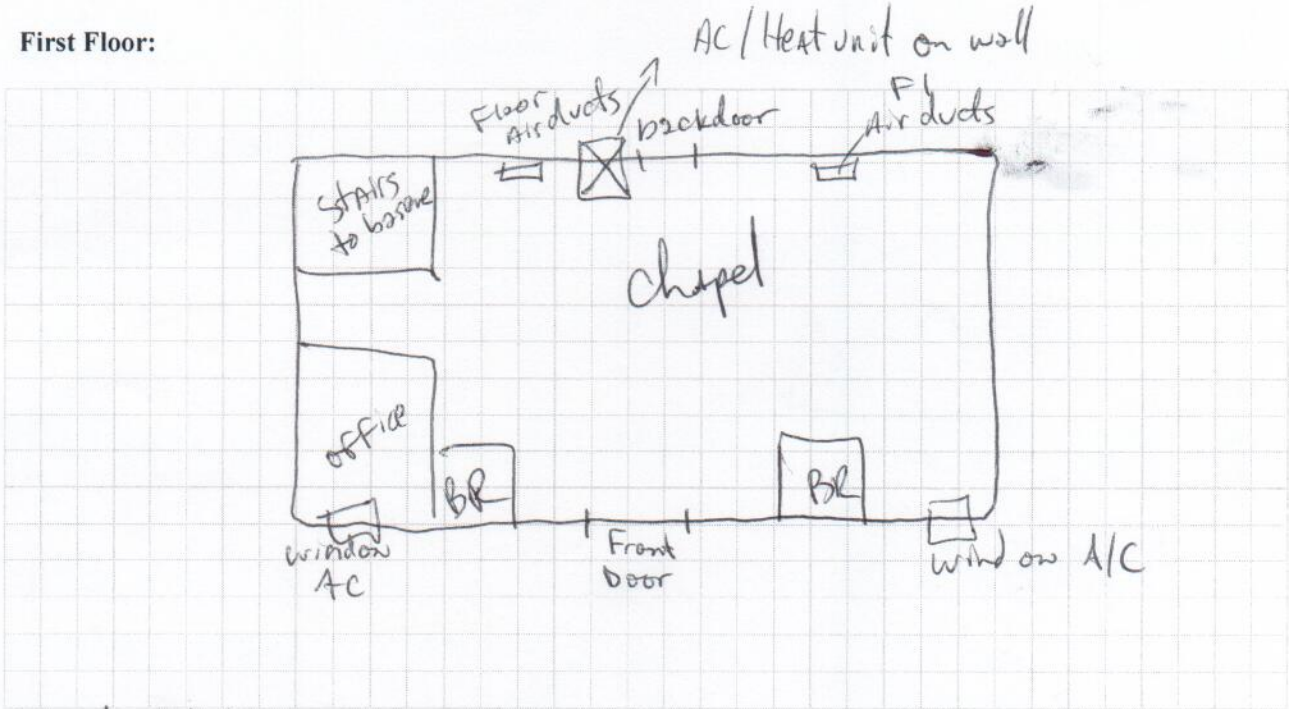 First Floor:
AC/Heat unit on wall
Floor
Air ducts
backdoor
Fl
Air ducts
Stairs
to baseme
Chapel
office
BR
BR
window
AC
Front
Door
window A/C